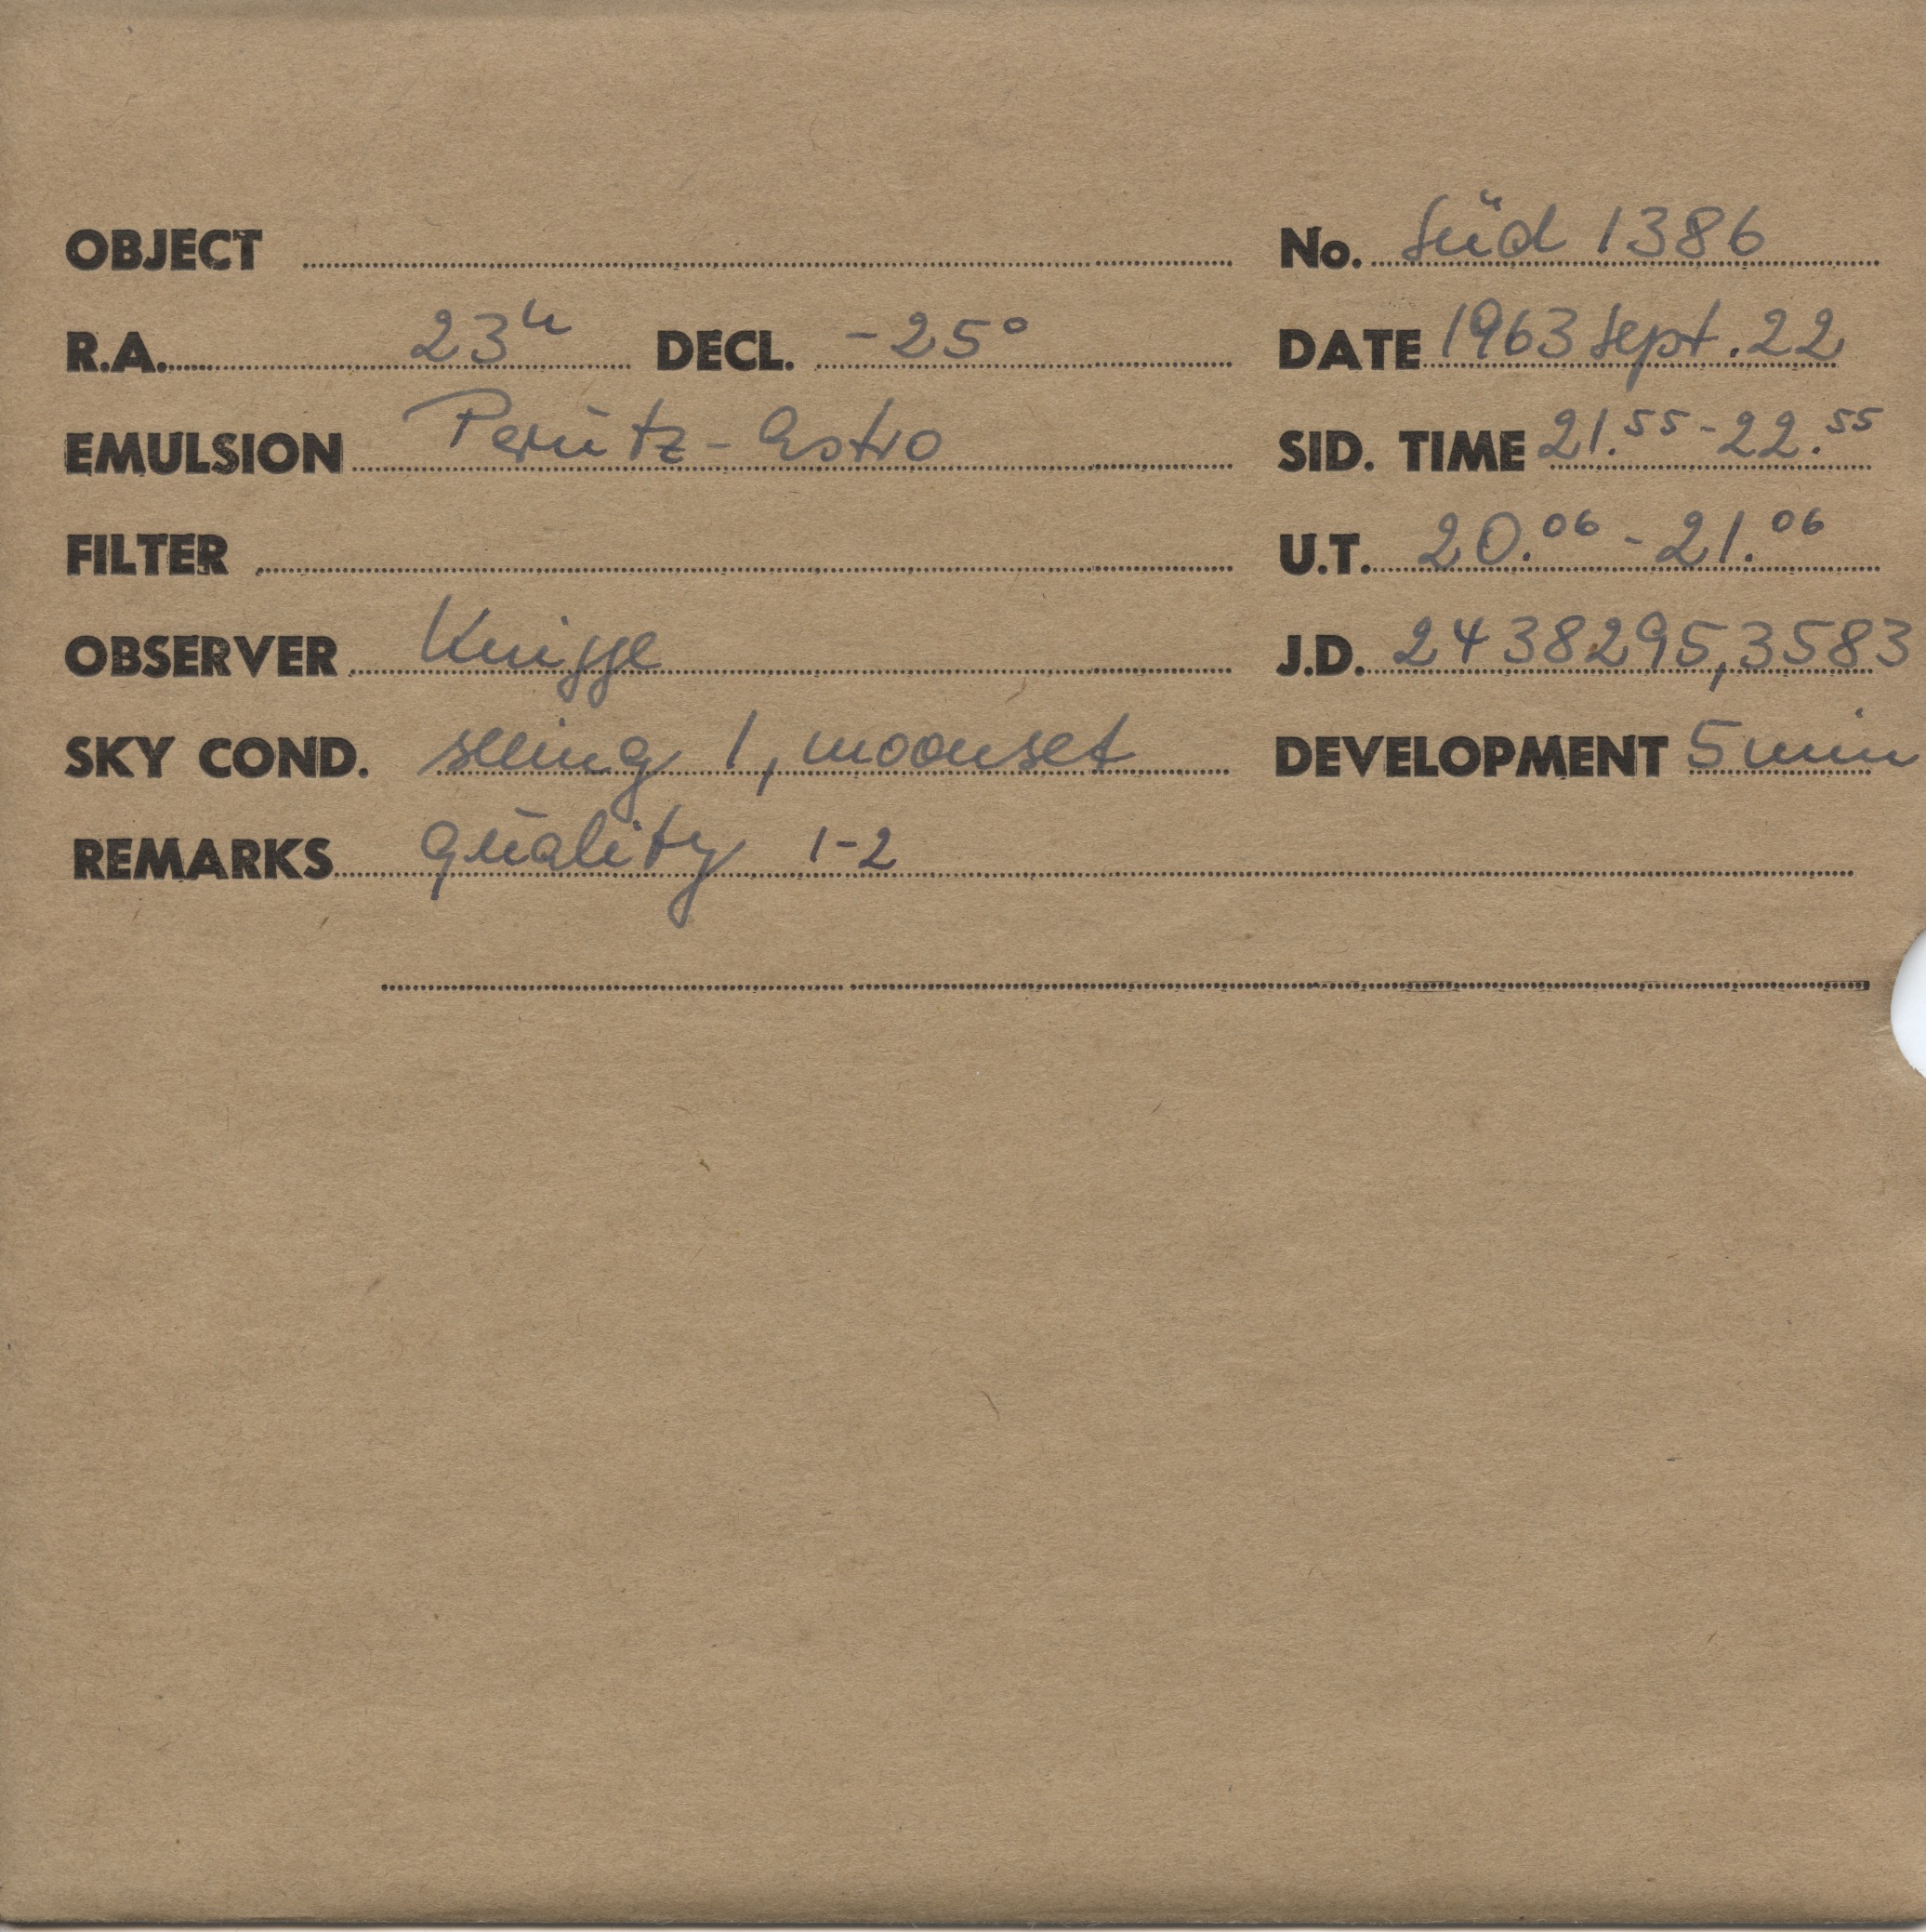 OBJECT No. Süd 1386
R.A. 23h DECL. -25° DATE 1963 Sept. 22
EMULSION Perutz-Astro SID. TIME 21.55-22.55
FILTER U.T. 20.06-21.06
OBSERVER Knigge J.D. 2438295,3583
SKY COND. seeing 1, moonset DEVELOPMENT 5 min
REMARKS quality 1-2